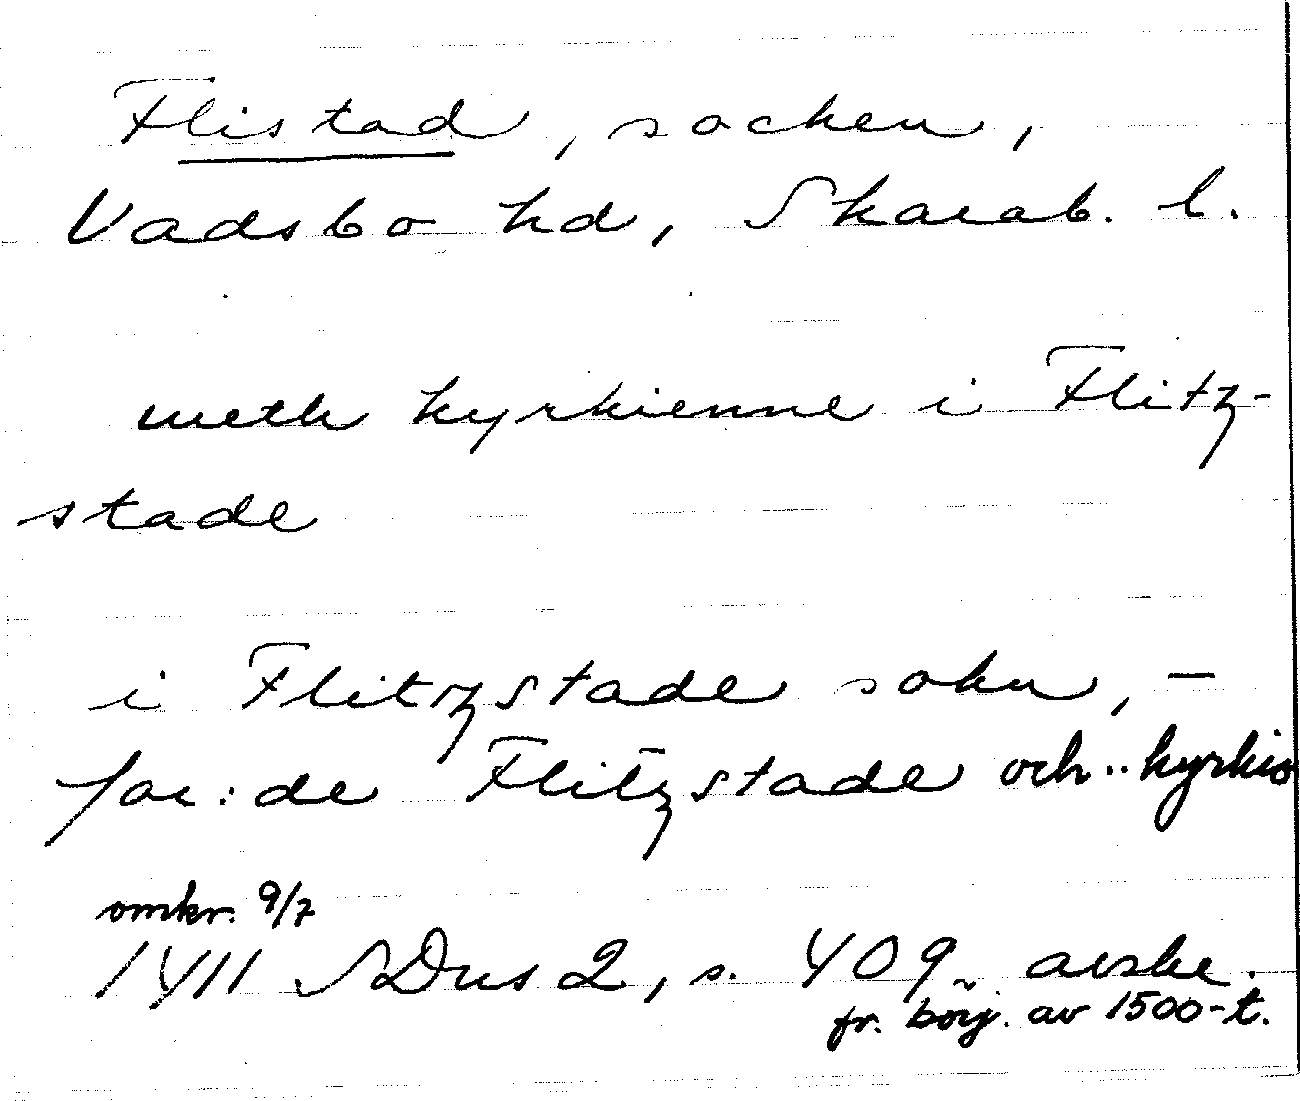 Flistad, socken,
Vadsbo hd, Skarab. l.
meth kyrkienne i Flitz-
stade
i Flitzstade sokn, –
for:de Flitzstade och .. kyrkio
omkr. 9/7
1411 SDns 2, s. 409, avskr.
fr. börj. av 1500-t.